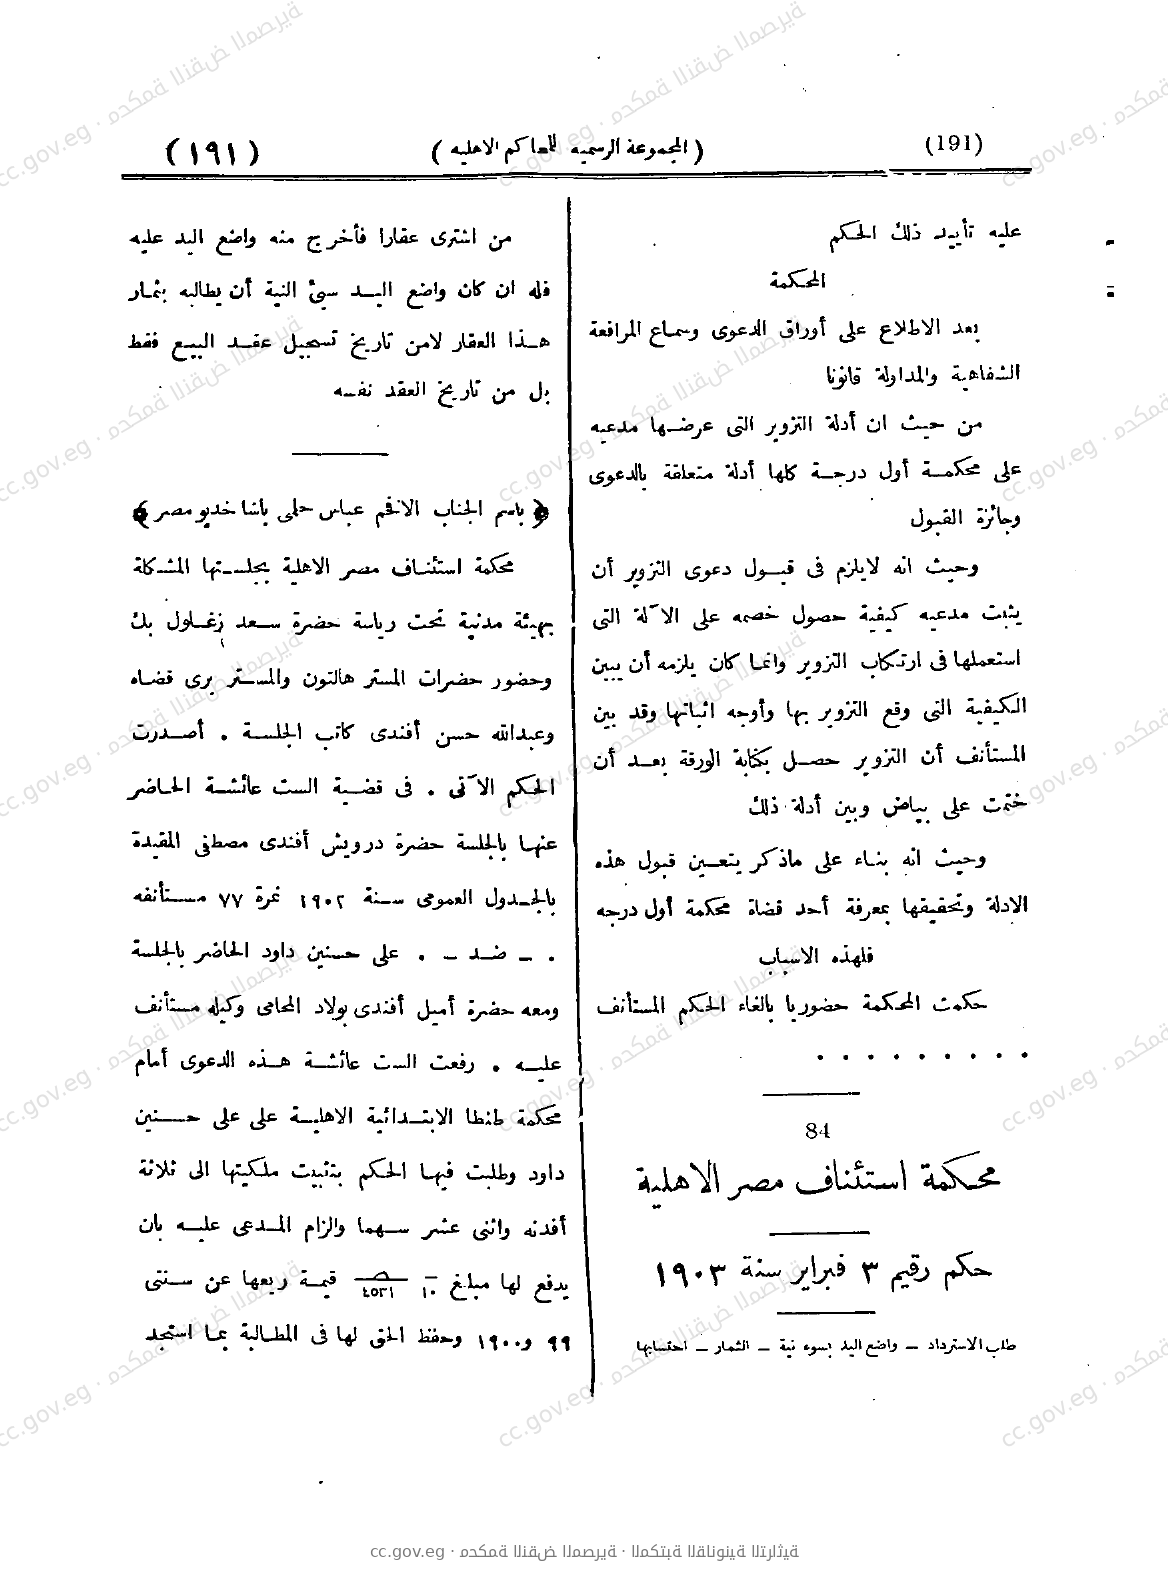 (191)
( المجموعة الرسميه للمحاكم الاهليه )
(١٩١)
عليه تأييد ذلك الحكم
المحكمة
بعد الاطلاع على أوراق الدعوى وسماع المرافعة
الشفاهية والمداولة قانونا
من حيث ان أدلة التزوير التى عرضها مدعيه
على محكمة أول درجة كلها أدلة متعلقة بالدعوى
وجائزة القبول
وحيث انه لايلزم فى قبول دعوى التزوير أن
يثبت مدعيه كيفية حصول خصمه على الآلة التى
استعملها فى ارتكاب التزوير وانما كان يلزمه أن يبين
الكيفية التى وقع التزوير بها وأوجه اثباتها وقد بين
المستأنف أن التزوير حصل بكتابة الورقة بعد أن
ختمت على بياض وبين أدلة ذلك
وحيث انه بناء على ماذكر يتعين قبول هذه
الادلة وتحقيقها بمعرفة أحد قضاة محكمة أول درجه
فلهذه الاسباب
حكمت المحكمة حضوريا بالغاء الحكم المستأنف
. . . . . . . . .
84
محكمة استئناف مصر الاهلية
حكم رقيم ٣ فبراير سنة ١٩٠٣
طلب الاسترداد – واضع اليد بسوء نية – الثمار – احتسابها
من اشترى عقارا فأخرج منه واضع اليد عليه
فله ان كان واضع اليد سيئ النية أن يطالبه بثمار
هذا العقار لامن تاريخ تسجيل عقد البيع فقط
بل من تاريخ العقد نفسه
﴿ باسم الجناب الافخم عباس حلمى باشا خديو مصر ﴾
محكمة استئناف مصر الاهلية بجلستها المشكلة
بهيئة مدنية تحت رياسة حضرة سعد زغلول بك
وحضور حضرات المستر هالتون والمستر برى قضاه
وعبدالله حسن أفندى كاتب الجلسة . أصدرت
الحكم الآتى . فى قضية الست عائشة الحاضر
عنها بالجلسة حضرة درويش أفندى مصطفى المقيدة
بالجدول العمومى سنة ١٩٠٢ نمرة ٧٧ مستأنفه
. – ضد – . على حسنين داود الحاضر بالجلسة
ومعه حضرة أميل أفندى بولاد المحامى وكيله مستأنف
عليه . رفعت الست عائشة هذه الدعوى أمام
محكمة طنطا الابتدائية الاهلية على على حسنين
داود وطلبت فيها الحكم بتثبيت ملكيتها الى ثلاثة
أفدنه واثنى عشر سهما والزام المدعى عليه بان
يدفع لها مبلغ ١٠ ٤٥٢١ قيمة ريعها عن سنتى
٩٩ و١٩٠٠ وحفظ الحق لها فى المطالبة بما استجد
cc.gov.eg · محكمة النقض المصرية · المكتبة القانونية التراثية